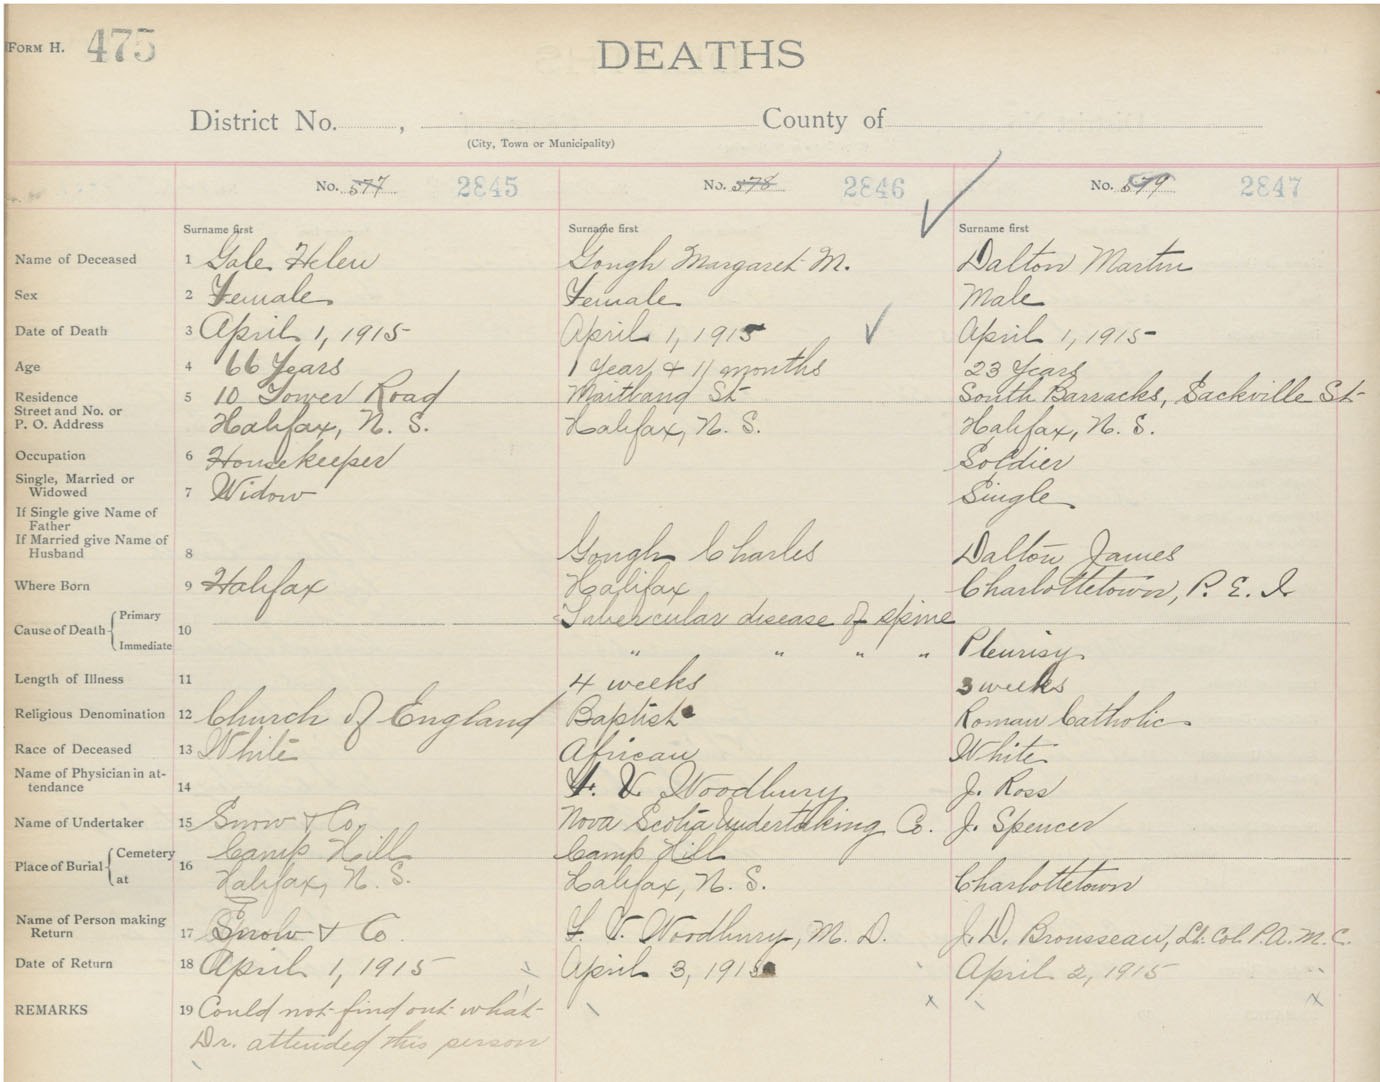 FORM H. 475
DEATHS
District No. , County of
(City, Town or Municipality)
No. 577 2845 No. 578 2846 No. 579 2847
Surname first Surname first Surname first
Name of Deceased 1 Gale Helen Gough Margaret M. Dalton Martin
Sex 2 Female Female Male
Date of Death 3 April 1, 1915 April 1, 1915 April 1, 1915
Age 4 66 Years 1 Year & 11 months 23 Years
Residence 5 10 Tower Road Maitland St South Barracks, Sackville St
Street and No. or
P. O. Address Halifax, N. S. Halifax, N. S. Halifax, N. S.
Occupation 6 Housekeeper Soldier
Single, Married or
Widowed 7 Widow Single
If Single give Name of
Father
If Married give Name of
Husband 8 Gough Charles Dalton James
Where Born 9 Halifax Halifax Charlottetown, P. E. I.
Primary Tubercular disease of spine
Cause of Death 10
Immediate " " " " Pleurisy
Length of Illness 11 4 weeks 3 weeks
Religious Denomination 12 Church of England Baptist Roman Catholic
Race of Deceased 13 White African White
Name of Physician in at-
tendance 14 F. V. Woodbury J. Ross
Name of Undertaker 15 Snow & Co. Nova Scotia Undertaking Co. J. Spencer
Cemetery Camp Hill Camp Hill
Place of Burial 16
at Halifax, N. S. Halifax, N. S. Charlottetown
Name of Person making
Return 17 Snow & Co F. V. Woodbury, M. D. J. D. Brousseau, Lt. Col. P. A. M. C.
Date of Return 18 April 1, 1915 April 3, 1915 April 2, 1915
REMARKS 19 Could not find out what
Dr. attended this person